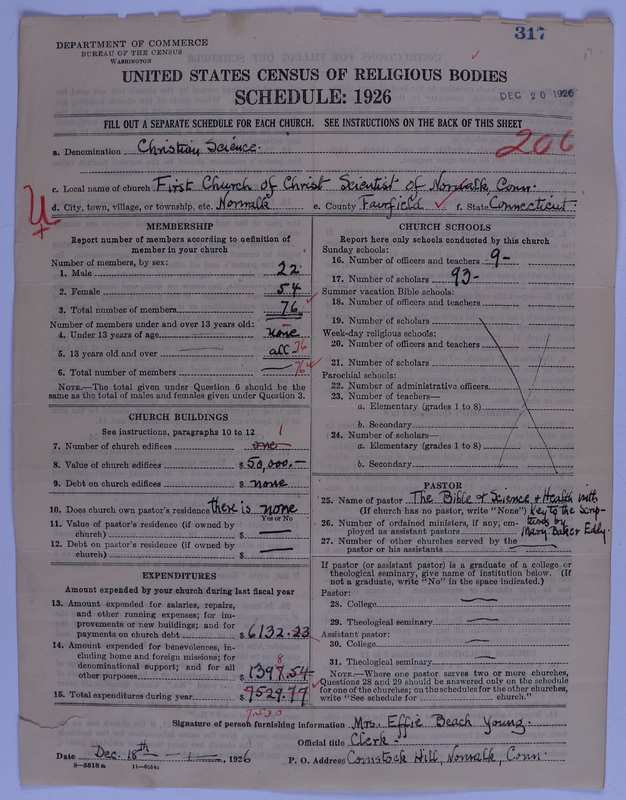 317
DEPARTMENT OF COMMERCE
BUREAU OF THE CENSUS
WASHINGTON
UNITED STATES CENSUS OF RELIGIOUS BODIES
SCHEDULE: 1926
DEC 20 1926
FILL OUT A SEPARATE SCHEDULE FOR EACH CHURCH. SEE INSTRUCTIONS ON THE BACK OF THIS SHEET
206
a. Denomination Christian Science.
c. Local name of church First Church of Christ Scientist of Norwalk, Conn.
d. City, town, village, or township, etc. Norwalk e. County Fairfield f. State Connecticut
MEMBERSHIP
Report number of members according to definition of
member in your church
Number of members, by sex:
1. Male 22
2. Female 54
3. Total number of members 76
Number of members under and over 13 years old:
4. Under 13 years of age none
5. 13 years old and over all 76
6. Total number of members 76
NOTE.—The total given under Question 6 should be the
same as the total of males and females given under Question 3.
CHURCH BUILDINGS
See instructions, paragraphs 10 to 12 1
7. Number of church edifices one
8. Value of church edifices $ 50,000.—
9. Debt on church edifices $ none
10. Does church own pastor's residence there is none
Yes or No
11. Value of pastor's residence (if owned by
church) $ —
12. Debt on pastor's residence (if owned by
church) $ —
EXPENDITURES
Amount expended by your church during last fiscal year
13. Amount expended for salaries, repairs,
and other running expenses; for im-
provements or new buildings; and for
payments on church debt $ 6132.23
14. Amount expended for benevolences, in-
cluding home and foreign missions; for
denominational support; and for all
other purposes $ 1397.54
8
15. Total expenditures during year $ 7529.77
7,530
CHURCH SCHOOLS
Report here only schools conducted by this church
Sunday schools:
16. Number of officers and teachers 9-
17. Number of scholars 93-
Summer vacation Bible schools:
18. Number of officers and teachers
19. Number of scholars
Week-day religious schools:
20. Number of officers and teachers
21. Number of scholars
Parochial schools:
22. Number of administrative officers
23. Number of teachers—
a. Elementary (grades 1 to 8)
b. Secondary
24. Number of scholars—
a. Elementary (grades 1 to 8)
b. Secondary
PASTOR
25. Name of pastor The Bible & Science & Health with
(If church has no pastor, write "None") Key to the Scrip-
26. Number of ordained ministers, if any, em- tures by
ployed as assistant pastors Mary Baker Eddy.
27. Number of other churches served by the
pastor or his assistants
If pastor (or assistant pastor) is a graduate of a college or
theological seminary, give name of institution below. (If
not a graduate, write "No" in the space indicated.)
Pastor:
28. College
29. Theological seminary
Assistant pastor:
30. College
31. Theological seminary
NOTE.—Where one pastor serves two or more churches,
Questions 28 and 29 should be answered only on the schedule
for one of the churches; on the schedules for the other churches,
write "See schedule for church."
Signature of person furnishing information Mrs. Effie Beach Young.
Official title Clerk.
Date Dec. 18th, 1926 P. O. Address Comstock Hill, Norwalk, Conn.